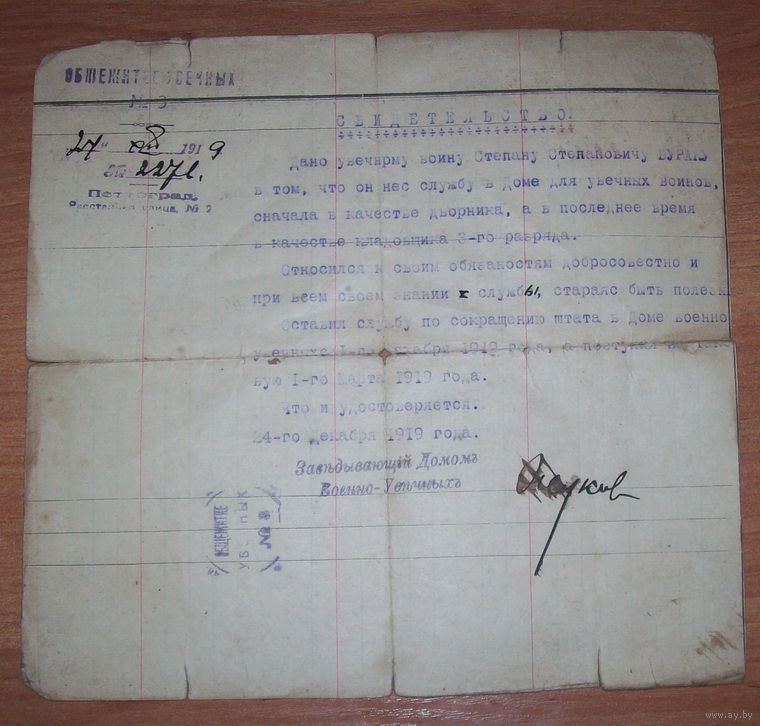 ОБЩЕЖИТ УВЕЧНЫХ
№ 3
"27" XII 1919
№ 2271.
Петроград
Расстанная улица, №
СВИДЕТЕЛЬСТВО.
Дано увечнрму воину Степану Степановичу БУРАКУ
в том, что он нес службу в Доме для увечных воинов,
сначала в качестве дворника, а в последнее время
в качестве кладовщика 3-го разряда.
Относился к своим обязакостям добросовестно и
при всем своем знании службы, стараяс быть полезн
Оставил службу по сокращению штата в Доме военно
увечных I-го декабря 1919 года, а поступил на
вую I-го марта 1919 года.
Что и удостоверяется.
24-го декабря 1919 года.
Завѣдывающій Домомъ
Военно-Увѣчныхъ
"ОБЩЕЖИТІЕ"
УВЕЧНЫХ
"№ 3"
www.ay.by